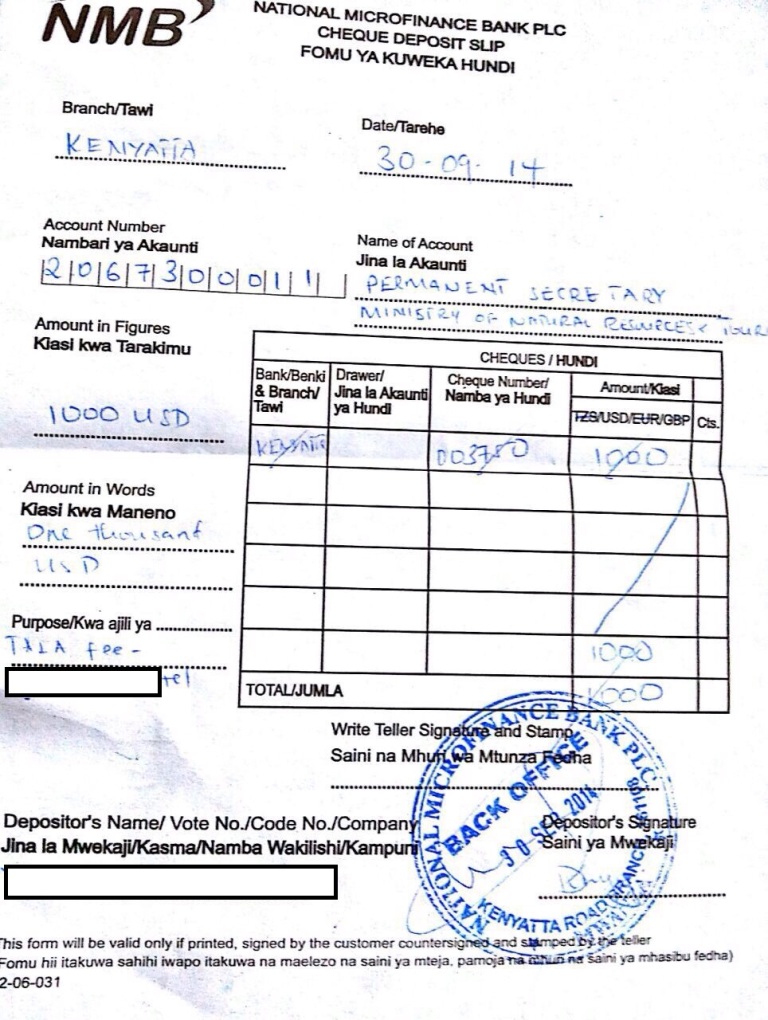 NMB
NATIONAL MICROFINANCE BANK PLC
CHEQUE DEPOSIT SLIP
FOMU YA KUWEKA HUNDI
Branch/Tawi
KENYATTA
Date/Tarehe
30-09-14
Account Number
Nambari ya Akaunti
20673000011
Name of Account
Jina la Akaunti
PERMANENT SECRETARY
MINISTRY OF NATURAL RESOURCES & TOUR
Amount in Figures
Kiasi kwa Tarakimu
1000 USD
CHEQUES / HUNDI
Bank/Benki & Branch/ Tawi
Drawer/ Jina la Akaunti ya Hundi
Cheque Number/ Namba ya Hundi
Amount/Kiasi
TZS/USD/EUR/GBP Cts.
KENYATTA 003750 1000
Amount in Words
Kiasi kwa Maneno
One thousand
USD
Purpose/Kwa ajili ya
TALA fee -
tel
1000
TOTAL/JUMLA 1000
Write Teller Signature and Stamp
Saini na Mhuri wa Mtunza Fedha
NATIONAL MICROFINANCE BANK PLC.
BACK OFFICE
30 SEP 2014
KENYATTA ROAD BRANCH
MWANZA
Depositor's Name/ Vote No./Code No./Company
Jina la Mwekaji/Kasma/Namba Wakilishi/Kampuni
Depositor's Signature
Saini ya Mwekaji
This form will be valid only if printed, signed by the customer countersigned and stamped by the teller
Fomu hii itakuwa sahihi iwapo itakuwa na maelezo na saini ya mteja, pamoja na mhuri na saini ya mhasibu fedha)
2-06-031